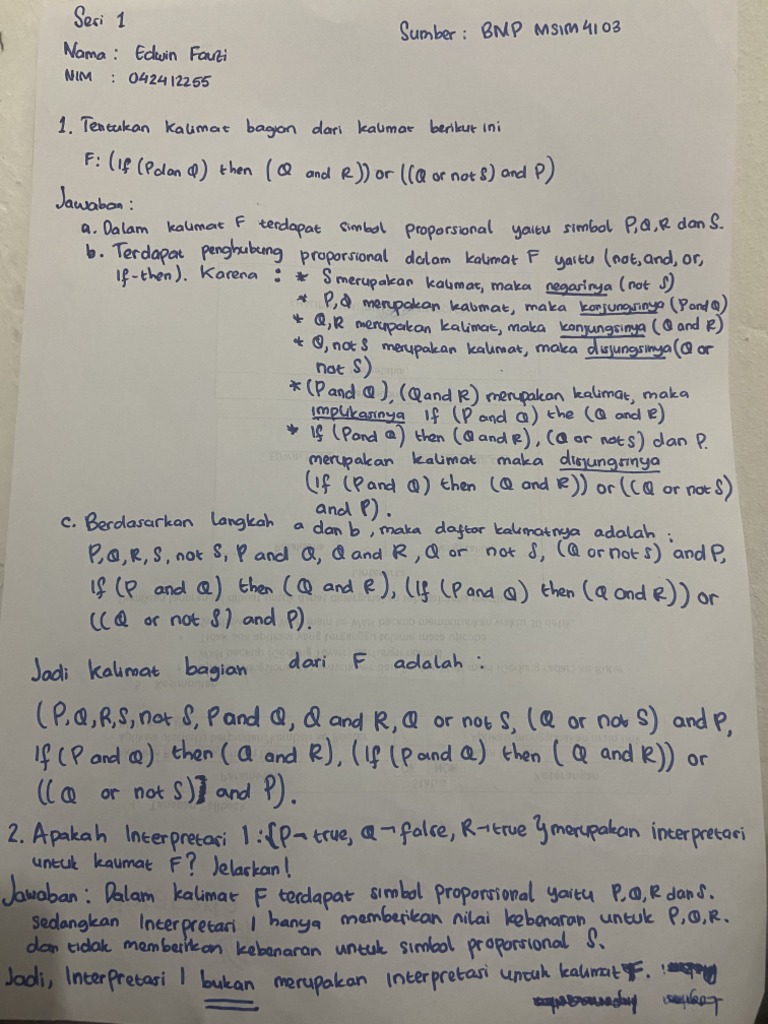 Sesi 1
Sumber : BMP MSIM4103
Nama : Edwin Fauzi
NIM : 042412255
1. Tentukan Kalimat bagian dari kalimat berikut ini
F: (If (P dan Q) then (Q and R)) or ((Q or not S) and P)
Jawaban :
a. Dalam kalimat F terdapat simbol proporsional yaitu simbol P,Q,R dan S.
b. Terdapat penghubung proporsional dalam kalimat F yaitu (not, and, or,
If-then). Karena : * S merupakan kalimat, maka negasinya (not S)
* P, Q merupakan kalimat, maka konjungsinya (P and Q)
* Q,R merupakan kalimat, maka konjungsinya (Q and R)
* Q, not S merupakan kalimat, maka disjungsinya (Q or
not S)
* (P and Q), (Q and R) merupakan kalimat, maka
implikasinya If (P and Q) the (Q and R)
* If (P and Q) then (Q and R), (Q or not S) dan P.
merupakan kalimat maka disjungsinya
(If (P and Q) then (Q and R)) or ((Q or not S)
and P).
c. Berdasarkan langkah a dan b, maka daftar kalimatnya adalah :
P, Q, R, S, not S, P and Q, Q and R, Q or not S, (Q or not S) and P,
If (P and Q) then (Q and R), (If (P and Q) then (Q and R)) or
((Q or not S) and P).
Jadi kalimat bagian dari F adalah :
(P, Q, R, S, not S, P and Q, Q and R, Q or not S, (Q or not S) and P,
If (P and Q) then (Q and R), (If (P and Q) then (Q and R)) or
((Q or not S) and P).
2. Apakah Interpretasi I : {P→true, Q→false, R→true} merupakan interpretasi
untuk kalimat F? Jelaskan!
Jawaban : Dalam kalimat F terdapat simbol proporsional yaitu P, Q, R dan S.
sedangkan Interpretasi I hanya memberikan nilai kebenaran untuk P, Q, R.
dan tidak memberikan kebenaran untuk simbol proporsional S.
Jadi, Interpretasi I bukan merupakan interpretasi untuk kalimat F.